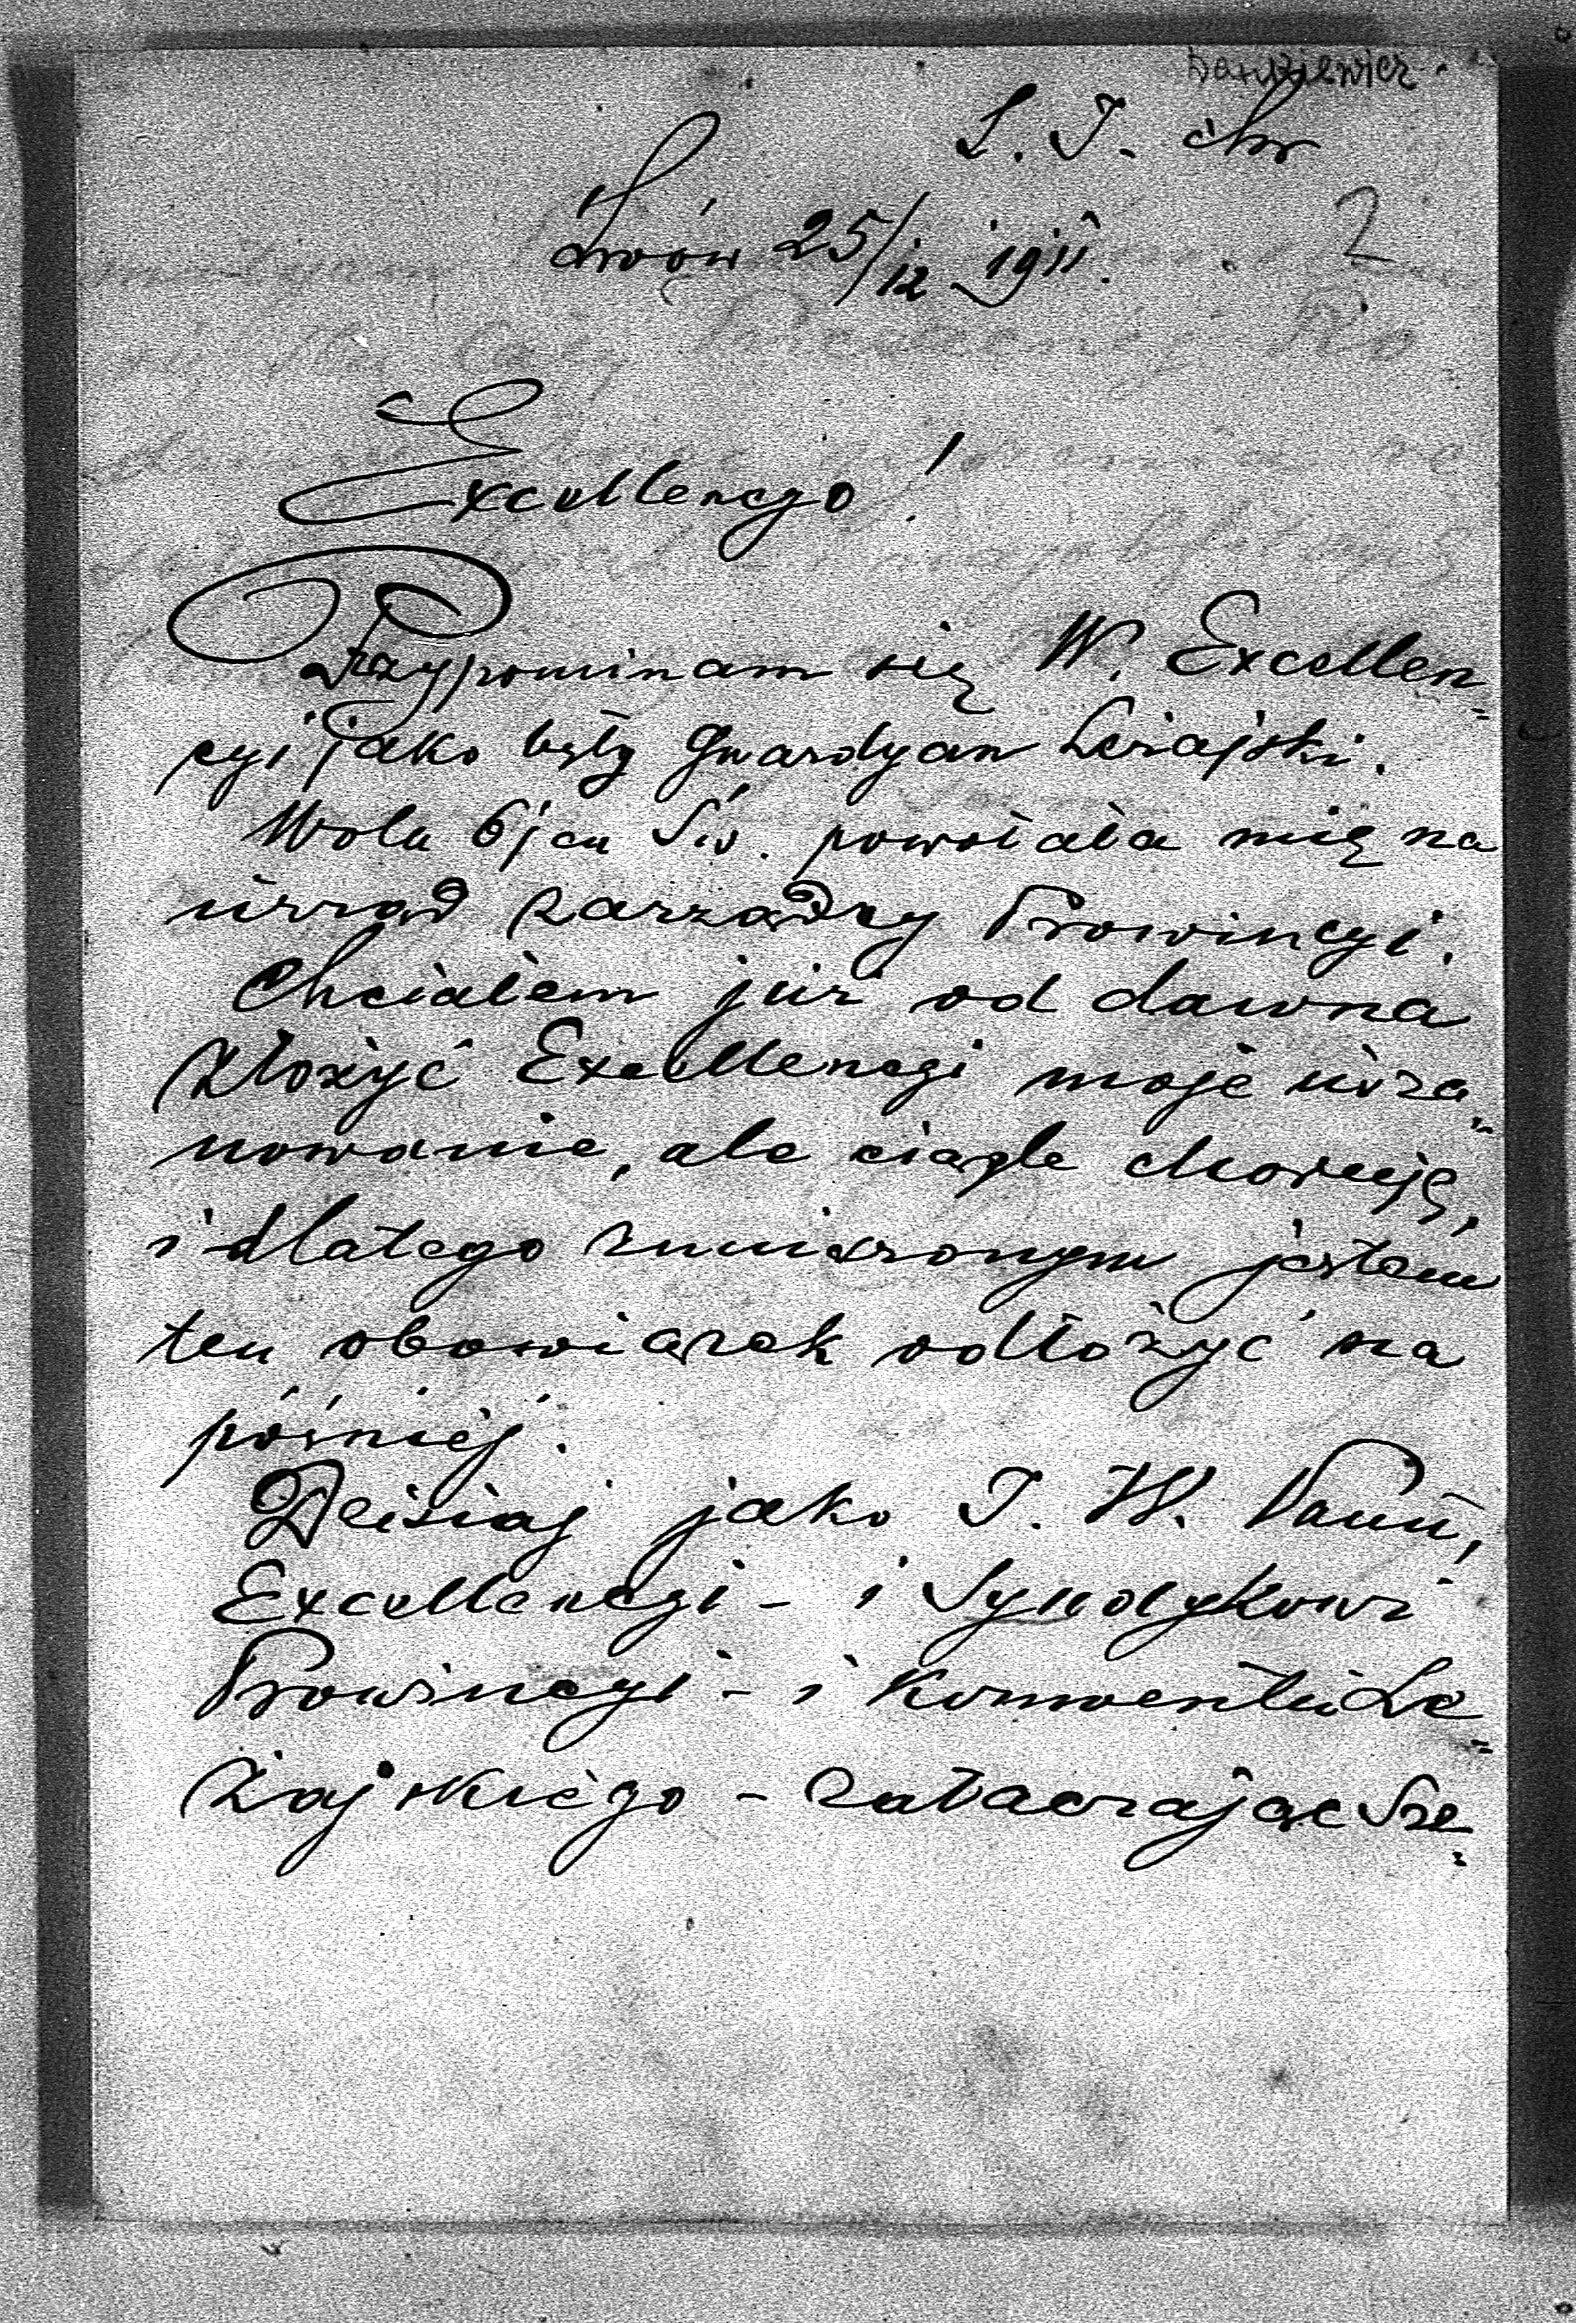 L. J. Chr
2
Lwów 25/12 1911.
Excellencyo!
Przypominam się W. Excellen=
cyi jako były Gwardyan Leżajski.
Wola Ojca Św. powołała mię na
urząd zarządcy Prowincyi.
Chciałem już od dawna
złożyć Excellencyi moje usza=
nowanie, ale ciągle choruję,
i dlatego zmuszonym jestem
ten obowiązek odłożyć na
później.
Dzisiaj jako J. W. Panu,
Excellencyi - i Syndykowi
Prowincyi - i Konwentu Le=
żajskiego - załączając Sze=